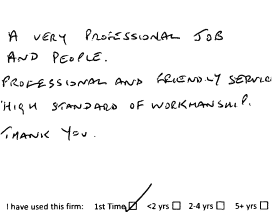 A VERY PROFESSIONAL JOB
AND PEOPLE.
PROFESSIONAL AND FRIENDLY SERVIC
HIGH STANDARD OF WORKMANSHIP.
THANK YOU.
I have used this firm: 1st Time ☑ <2 yrs ☐ 2-4 yrs ☐ 5+ yrs ☐